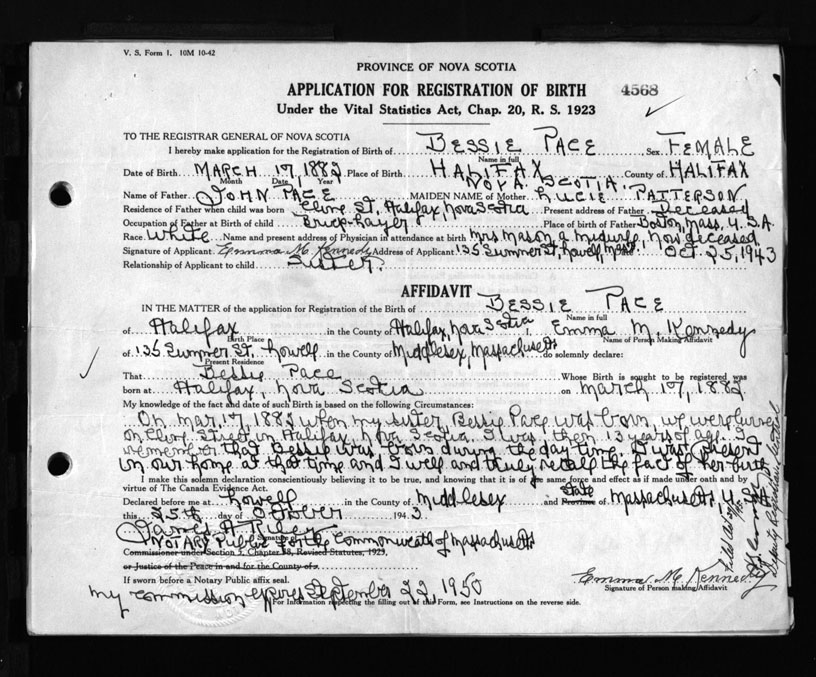 V. S. Form 1. 10M 10-42
PROVINCE OF NOVA SCOTIA
APPLICATION FOR REGISTRATION OF BIRTH 4568
Under the Vital Statistics Act, Chap. 20, R. S. 1923
TO THE REGISTRAR GENERAL OF NOVA SCOTIA
I hereby make application for the Registration of Birth of BESSIE PACE Sex FEMALE
Name in full
Date of Birth MARCH 17, 1882 Place of Birth HALIFAX County of HALIFAX
Month Date Year NOVA SCOTIA.
Name of Father JOHN PACE MAIDEN NAME of Mother LUCIE PATTERSON
Residence of Father when child was born St, Halifax, Nova Scotia Present address of Father Deceased
Occupation of Father at Birth of child Brick-Layer Place of birth of Father Boston, Mass, U.S.A.
Race White Name and present address of Physician in attendance at birth Mrs Mason a midwife, now deceased
Signature of Applicant Emma M. Kennedy Address of Applicant 135 Summer St, Lowell, Mass. Date Oct 25, 1943
Relationship of Applicant to child Sister.
AFFIDAVIT
IN THE MATTER of the application for Registration of the Birth of BESSIE PACE
Name in full
of Halifax in the County of Halifax, Nova Scotia I, Emma M. Kennedy
Birth Place Name of Person Making Affidavit
of 135 Summer St, Lowell in the County of Middlesex, Massachusetts do solemnly declare:
Present Residence
That Bessie Pace Whose Birth is sought to be registered was
born at Halifax, Nova Scotia on March 17, 1882
My knowledge of the fact and date of such Birth is based on the following Circumstances:
On Mar. 17, 1882 when my sister Bessie Pace was born, we were living
on Street in Halifax, Nova Scotia. I was then 13 years of age. I
remember that Bessie was born during the day time. I was present
in our home at that time and I well and truly recall the fact of her birth
I make this solemn declaration conscientiously believing it to be true, and knowing that it is of same force and effect as if made under oath and by
virtue of The Canada Evidence Act.
Declared before me at Lowell in the County of Middlesex and Province State of Massachusetts U.S.A
this 25th day of October 1943
James H. Riley
Signature of
Notary Public for the Commonwealth of Massachusetts
Commissioner under Section 5, Chapter 38, Revised Statutes, 1923,
or Justice of the Peace in and for the County of
If sworn before a Notary Public affix seal.
Emma M. Kennedy
Signature of Person making Affidavit
My commission expires September 22, 1950
For Information respecting the filling out of this Form, see Instructions on the reverse side.
Deputy Registrar General